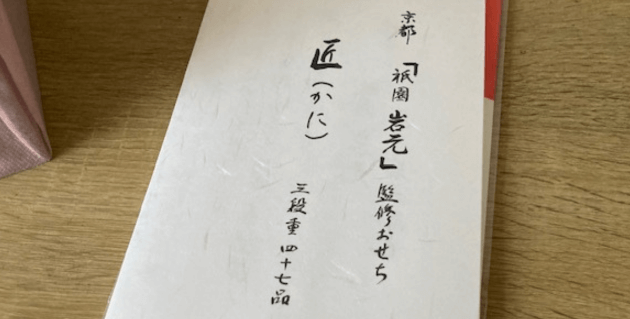 京都「祇園 岩元」監修おせち
匠（かに）
三段重 四十七品